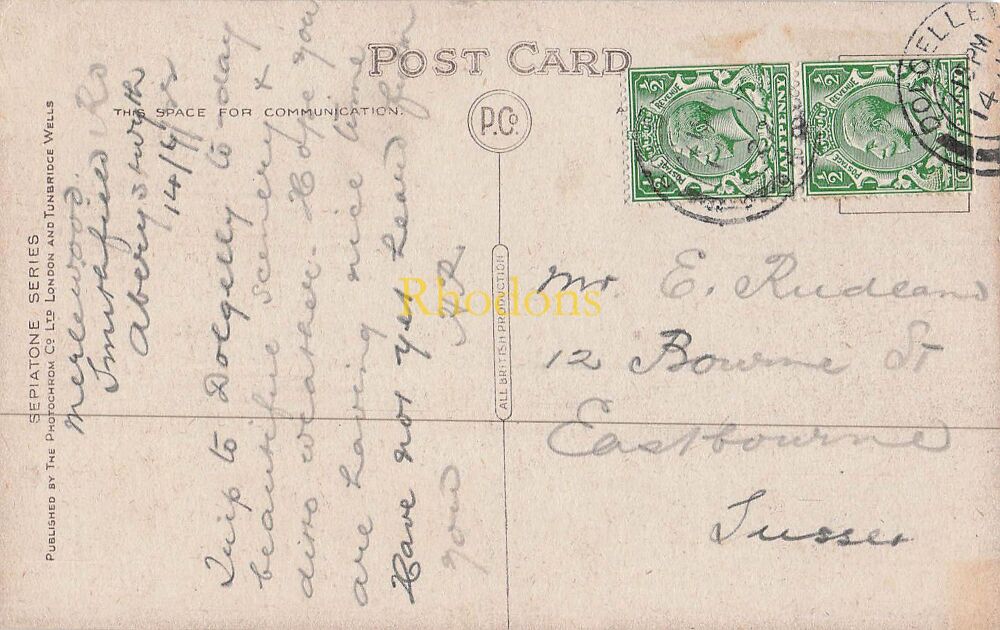 POST CARD
THIS SPACE FOR COMMUNICATION.
P.Co
SEPIATONE SERIES
PUBLISHED BY THE PHOTOCHROM CO LTD LONDON AND TUNBRIDGE WELLS
ALL BRITISH PRODUCTION
Merlewood.
Smithfield Rd
Aberystwyth
14/7/
Trip to Dolgelly to-day
beautiful scenery &
ditto weather. Hope you
are having nice time
Have not yet heard from
you
Mr. E. Rudland
12 Bourne St
Eastbourne
Sussex
POSTAGE
REVENUE
HALFPENNY
½
½
POSTAGE
REVENUE
HALFPENNY
½
½
DOLGELLEY
PM
14
Rhodons